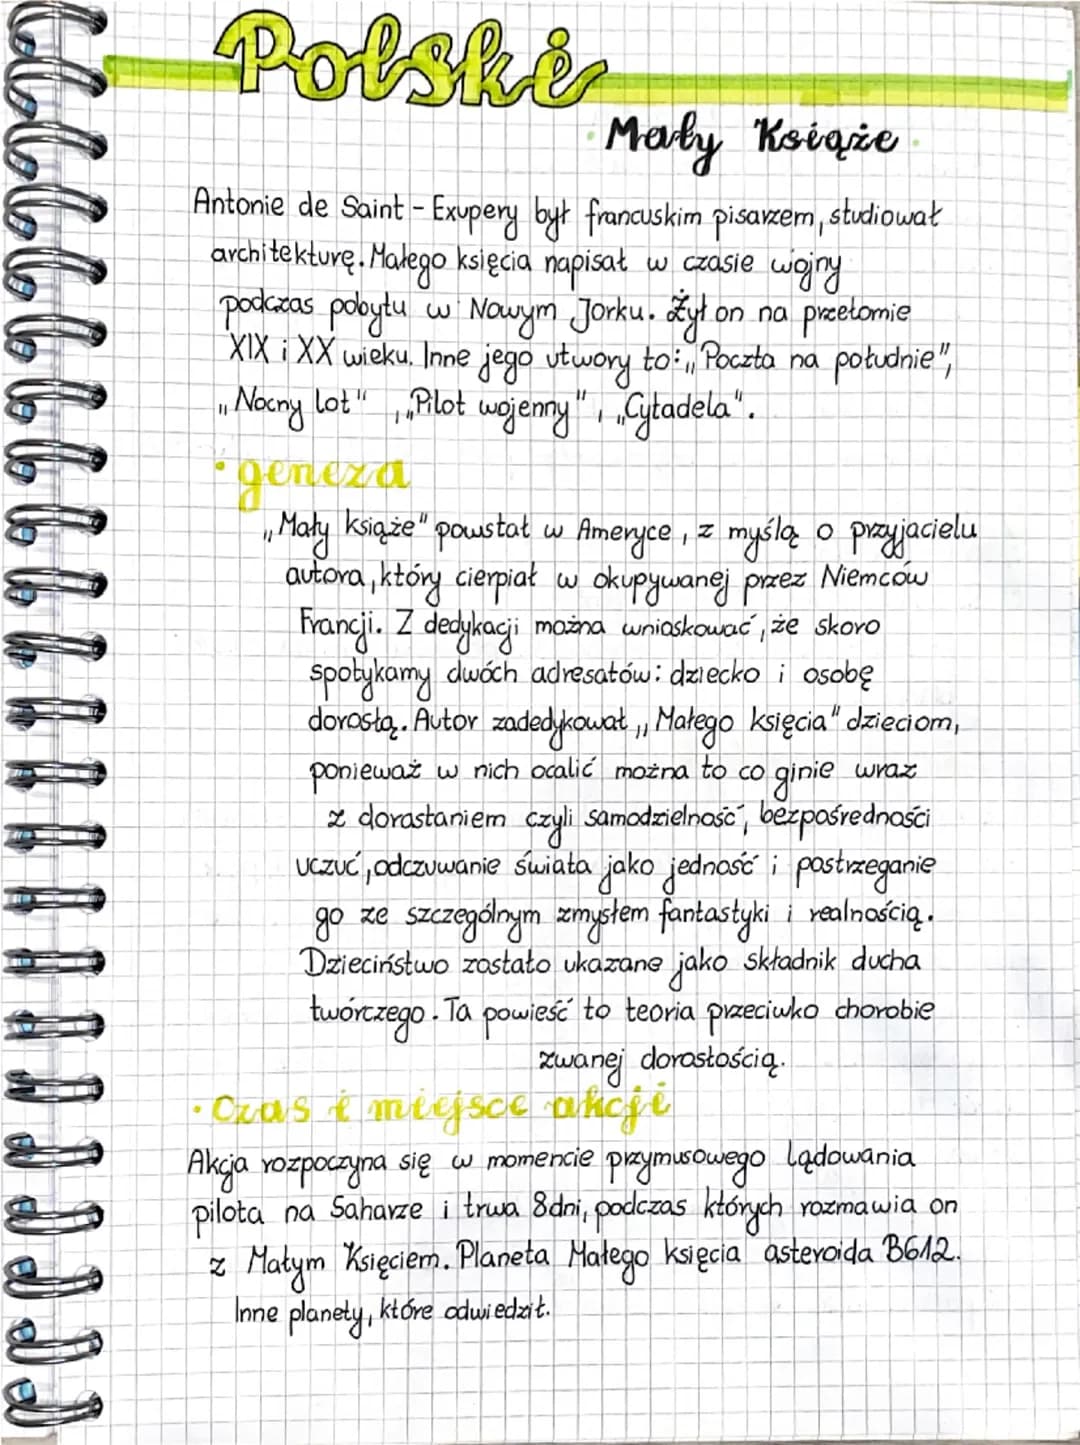 Polski
Mały Książe
Antonie de Saint - Exupery był francuskim pisarzem, studiował
architekturę. Małego księcia napisał w czasie wojny
podczas pobytu w Nowym Jorku. Żył on na przełomie
XIX i XX wieku. Inne jego utwory to: „Poczta na południe",
„Nocny lot" , „Pilot wojenny" , „Cytadela".
• geneza
„Mały książe" powstał w Ameryce, z myślą o przyjacielu
autora, który cierpiał w okupywanej przez Niemców
Francji. Z dedykacji można wnioskować, że skoro
spotykamy dwóch adresatów: dziecko i osobę
dorosłą. Autor zadedykował „Małego księcia" dzieciom,
ponieważ w nich ocalić można to co ginie wraz
z dorastaniem czyli samodzielność, bezpośredności
uczuć, odczuwanie świata jako jedność i postrzeganie
go ze szczególnym zmysłem fantastyki i realnością.
Dzieciństwo zostało ukazane jako składnik ducha
twórczego. Ta powieść to teoria przeciwko chorobie
zwanej dorosłością.
• Czas i miejsce akcji
Akcja rozpoczyna się w momencie przymusowego lądowania
pilota na Saharze i trwa 8dni, podczas których rozmawia on
z Małym Księciem. Planeta Małego księcia asteroida B612.
Inne planety, które odwiedził.